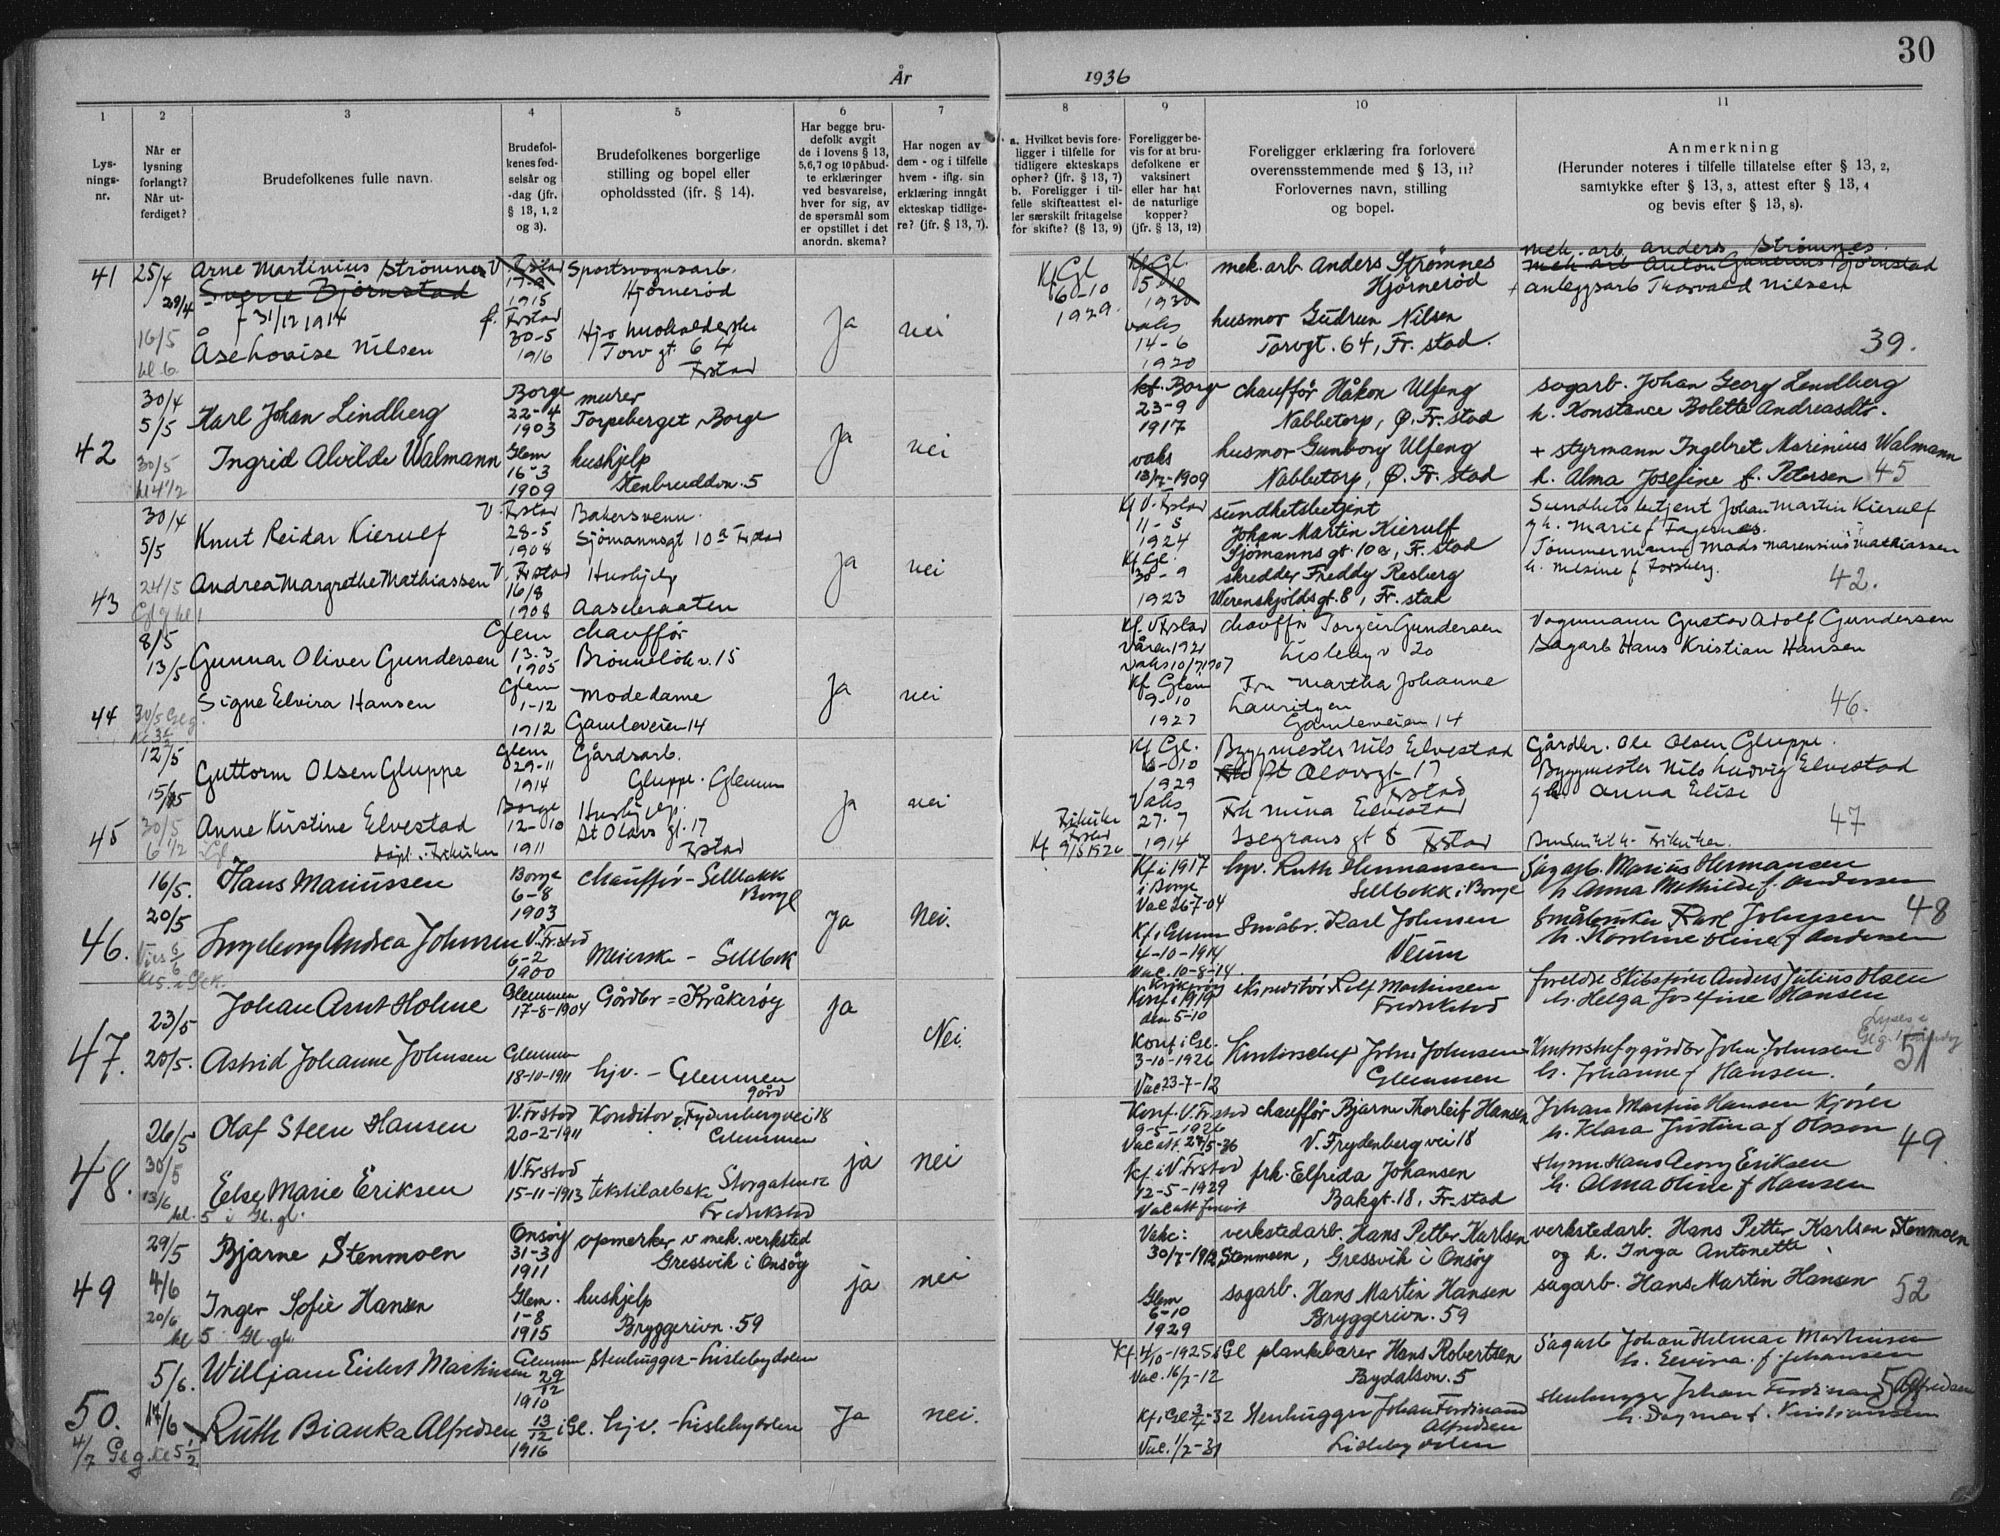 30
År 1936
1 2 3 4 5 6 7 8 9 10 11
Lys-
nings-
nr.
Når er
lysning
forlangt?
Når ut-
ferdiget?
Brudefolkenes fulle navn.
Brudefol-
kenes fød-
selsår og
-dag (jfr.
§ 13, 1, 2
og 3).
Brudefolkenes borgerlige
stilling og bopel eller
opholdssted (jfr. § 14).
Har begge bru-
defolk avgit
de i lovens § 13,
5,6,7 og 10 påbud-
te erklæringer
ved besvarelse,
hver for sig, av
de spørsmål som
er opstillet i det
anordn. skema?
Har nogen av
dem - og i tilfelle
hvem - iflg. sin
erklæring inngåt
ekteskap tidlige-
re? (jfr. § 13, 7).
a. Hvilket bevis fore-
ligger i tilfelle for
tidligere ekteskaps
ophør? (jfr. § 13, 7)
b. Foreligger i til-
felle skifteattest el-
ler særskilt fritagelse
for skifte? (§ 13, 9)
Foreligger be-
vis for at bru-
defolkene er
vaksinert
eller har hat
de naturlige
kopper?
(jfr. § 13, 12)
Foreligger erklæring fra forlovere
overensstemmende med § 13, 11?
Forlovernes navn, stilling
og bopel.
Anmerkning
(Herunder noteres i tilfelle tillatelse efter § 13, 2,
samtykke efter § 13, 3, attest efter § 13, 4
og bevis efter § 13, 8).
41
25/4
29/4
16/5
kl 6
Arne Martinius Strømnes
Sverre Bjørnstad
f 31/12 1914
Åse Lovise Nilsen
V. Frstad
1915
f. Frstad
30-5
1916
Sportsvognarb.
Hjørnerød
Torvgt. 64
Frstad
ja
nei
Kf Gl
6-10
1929
1930
vaks
14-6
1920
mek. arb. Anders Strømnes
Hjørnerød
husmor Gudrun Nilsen
Torvgt. 64, Fr. stad.
mek. arb. Anders Strømnes.
mek arb Anton Gunerius Bjørnstad
+ anleggsarb Thorvald Nilsen
39.
42
30/4
5/5
30/5
kl 4 1/2
Karl Johan Lindberg
Ingrid Alvilde Walmann
Borge
22-4
1903
Glem
16-3
1909
murer
Torpeberget, Borge
hushjelp
Stenbruddvn. 5
Ja
nei
kf. Borge
23-9
1917
vaks
13/7-1909
chauffør Håkon Ulfeng
Nabbetorp, Ø. Fr. stad
husmor Gunborg Ulfeng
Nabbetorp, Ø. Fr. stad
sagarb. Johan Georg Lindberg
h. Konstance Bolette Andreasdtr.
+ styrmann Ingebret Marinius Walmann
h. Alma Josefine f. Petersen 45
43
30/4
5/5
24/5
Knut Reidar Kierulf
Andrea Margrethe Mathiassen
V. Frstad
28-5
1908
V. Frstad
16/8
1908
Bakersvenn.
Sjømannsgt 10a Frstad
Hushjelp
Aaseleraaten
Ja
nei
Kf V. Frstad
11-5
1924
Kf Gl.
30-9
1923
sundhetsbetjent
Johan Martin Kierulf
Sjømanns gt. 10a, Fr. stad
skredder Freddy Resberg
Werenskjoldsgt. 8, Fr. stad
Sundhetsbetjent Johan Martin Kierulf
g h. Marie f Fagernes.
Tømmermann Mads Marensius Mathiassen
h. Nilsine f Forsberg.
42.
44
8/5
13/5
30/5 Gl g.
Gunnar Oliver Gundersen
Signe Elvira Hansen
Glem
13.3
1905
Glem
1-12
1912
chauffør
Brønneløkv. 15
Modedame
Gamleveien 14
Ja
nei
Kf. V Frstad
Våren 1921
Vaks 10/7 1907
Kf Glem
9-10
1927
chauffør Torgeir Gundersen
Lisleby v 20
Fru Martha Johanne
Lauritzen
Gamleveien 14
Vognmann Gustav Adolf Gundersen
Sagarb Hans Kristian Hansen
46.
45
12/5
15/5
30/5
6 1/2 Gl
Guttorm Olsen Gluppe
Anne Kirstine Elvestad
døpt i Frikirken
Glem
29-11
1914
Borge
12-10
1911
Gårdsarb.
Gluppe. Glemmen
Hushjelp.
St Olavs gt. 17
Frstad
Ja
nei
Frikirken
Frstad
Kf 9/5 1926
Kf Gl.
6-10
1929
Vaks
27-7
1914
Byggmester Nils Elvestad
St Olavsgt 17
Frstad
Frk Nina Elvestad
Isegrans gt 8 Frstad
Gårdbr. Ole Olsen Gluppe.
Byggmester Nils Ludvig Elvestad
g h. Anna Elise
47
46.
16/5.
20/5
Hans Mariussen
Ingeborg Andrea Johnsen
Borge
6-8
1903
V. Fr. stad
6-2
1900
chauffør - Sellbakk
Borge
Meierske - Sellbak
Ja
Nei.
Kf i 1917
i Borge
Vac 26-7-04
Kf. i Glemm
4-10-1914
Vac. 10-8-14.
hjv. Ruth Hermansen
Sellbakk i Borge
Småbr. Karl Johnsen
Veum
Sagarb. Marius Hermansen
h Anna Mathilde f. Andersen
Småbruker Karl Johnsen
48
47.
23/5
20/5.
Johan Arnt Holme
Astrid Johanne Johnsen
Glemmen
17-8-1904
Glemmen
18-10-1911
Gårdbr = Kråkerøy
hjv. - Glemmen
gård
ja
Nei.
Konf i 1919
den 5-10
Konf i Gl.
3-10-1926
Vac 23-7-12
ekspeditør Rolf Martinsen
Fredrikstad
Kontorchef John Johnsen
Glemmen
foreldre Skibsfører Anders Julius Olsen
h. Helga Josefine Hansen
Kontorchef og gårdbr John Johnsen
h. Johanne f Hansen.
51
48.
26/5
30/5
13/6
kl. 5 i Gl. gl.
Olaf Steen Hansen
Else Marie Eriksen
V. Frstad
20-2-1911
V. Frstad
15-11-1913
Konditor
Glemmen
tekstilarbske Storgaten
Fredrikstad
ja
nei
Konf. V. Frstad
9-5-1926
Kf. i V. Frstad
12-5-1929
chauffør Bjarne Thorleif Hansen
V. Frydenbergvei 18
frk. Elfrida Johansen
Bakgt. 18, Fr. stad
Johan Martin Hansen Kjører
h. Klara Justina f Olsson
styrm. Hans Georg Eriksen
h. Alma Oline f Hansen
49.
49
29/5
4/6
20/6
kl 5 Gl. gl.
Bjarne Stenmoen
Inger Sofie Hansen
Onsøy
31-3
1911
Glem.
1-8
1915
opmerker v mek. verksted
Gressvik i Onsøy
hushjelp
Bryggerivn. 59
ja
nei
Vakc:
30/7-1912
Glem
6-10
1929
verkstedarb. Hans Petter Karlsen
Stenmoen, Gressvik i Onsøy
sagarb. Hans Martin Hansen
Bryggerivn. 59
verkstedarb. Hans Petter Karlsen Stenmoen
og h. Inga Antonette
sagarb. Hans Martin Hansen
52
50.
5/6.
4/7 Gl g. kl 5 1/2
William Eilert Martinsen
Ruth Bianka Alfredsen
Glemmen
29/12
1910
13/12 i Gl.
1916
Stenhugger - Lislebydalen
hjv. - Lislebydalen
Ja
nei.
Kf. 4/10-1925 i Gl
Vac. 16/7-12
Vac. 1/2-31
plankebærer Hans Robertsen
Bydalsvn. 5
Stenhugger Johan Ferdinand
Alfredsen
Lislebydalen
Sagarb Johan Hilmar Martinsen
h. Elvina f. Johansen
Stenhugger Johan Ferdinand Alfredsen
h. Dagmar f. Kristiansen
50